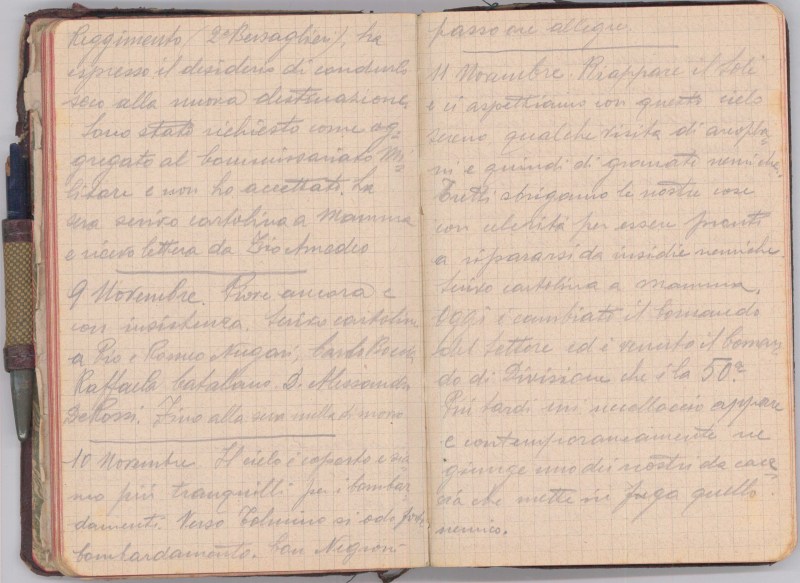 Reggimento (2° Bersaglieri), ha
espresso il desiderio di condurlo
seco alla nuova destinazione.
Sono stato richiesto come ag=
gregato al Commissariato Mi=
litare e non ho accettato. La
sera scrivo cartolina a Mamma
e ricevo lettera da Zio Amedeo
9 Novembre. Piove ancora e
con insistenza. Scrivo cartoline
a Pio e Romeo Nugari, Carlo
Raffaele Catalano. D. Alessandri
De Rossi. Fino alla sera nulla di nuovo
10 Novembre. Il cielo è coperto e sia
mo più tranquilli per i bombar
damenti. Verso Tolmino si ode forte
bombardamento. Con Negroni
passo ore allegre.
11 Novembre. Riappare il Sole
e ci aspettiamo con questo cielo
sereno qualche visita di aeropla=
ni e quindi di granate nemiche.
Tutti sbrigano le nostre cose
con celerità per essere pronti
a ripararsi da insidie nemiche.
Scrivo cartolina a mamma.
Oggi è cambiato il Comando
del Settore ed è venuto il Coman
do di Divisione che è la 50ª.
Più tardi un uccellaccio appare
e contemporaneamente ne
giunge uno dei nostri da cac
cia che mette in fuga quello
nemico.